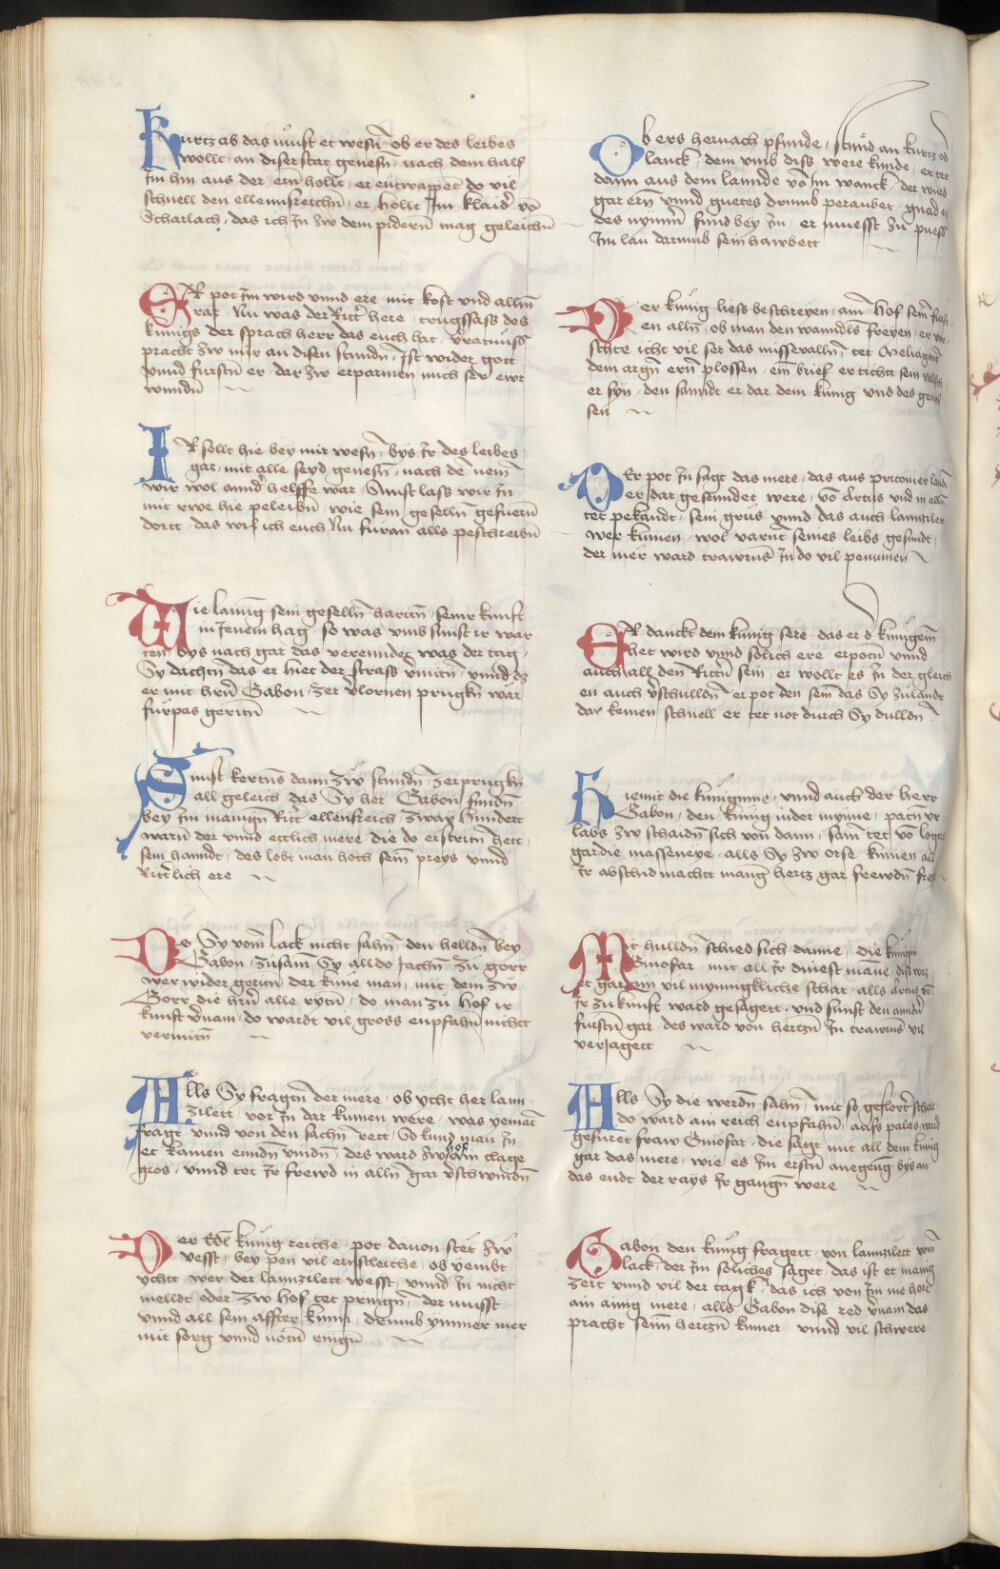 Kurtz ab das must et wesn̄ ob er des leibes
wollt an diser stat genesn̄ nach dem half
Im hin aus der ern̄ hollt er entwappet do vil
schnell den ellennsreichn̄ er hollt Im klaid' vō
Scharlach das ich In zw dem pidern̄ mag geleichn̄
ER pot Im wird vnnd ere mit kost vnd allm̄
rat Nu was der Ritt' here trugsass des
kunigs der sprach herr das euch hat
pracht zw mir an disen stundn̄ Ist wider gott
vnnd furstn̄ er der zw erparmen mich ser ewr
wundn̄
IR sollt hie bey mir wesn̄ bys Ir des leibes
gar mit alle seyd genesn̄ nach dē
wir wol annd' helffe war Sunst lass wir In
mit rwe hie peleibn̄ wie sein geselln̄ gefuern̄
dortt das wil ich euch Nu furan alls peschreibn̄
Die lanng sein geselln̄ hartn̄ seinr kunft
in Jenem hag so was vmb sunst ir war
ten bys nach gar das verenndet was der tag
Sy dachtn̄ das er hiet der strass v'mitn̄ vnnd dz
er mit hern̄ Gabon zer v'lornen prugkn̄ war
furpas geritn̄
Sunst kertns dann zw stundn̄ zer prugkn̄
all geleich das Sy her Gabon fundn̄
bey Im manign̄ Ritt' ellensreich zway hundert
warn̄ der vnnd ettlich mere die do erstritn̄ hett
sein hanndt des lobt man hoch sein preys vnnd
Ritt'lich ere
Do Sy vom lack nicht sahn̄ den helldn̄ bey
Gabon zusam̄ Sy alldo Jachn̄ zu gorr
wer wider geritn̄ der kune man mit dem zw
Gorr die hrn̄ alle rytn̄ do man zu hof ir
kunft v'nam do wardt vil gross enpfahn̄ nichtt
vermitn̄
Alls Sy fragtn̄ der mere ob ycht her lann
zilett vor In dar kumen were was yemāt
fragt vnnd von den sachn̄ rett So kund man In
et kainen endn̄ vindn̄ des ward zw hof ein clage
gros vnnd tet Ir frewd in alln̄ gar v'schwindn̄
Der Edl kunig reiche pot dauon stet zw
vesst bey pen vil ernstleiche ob yembt
ychtt wer der lannzilett wesst vnnd In nicht
melldt oder zw hof tet pringn̄ der musst
vnnd all sein affter kunn drumb ymmer mer
mit sorg vnnd nötn̄ ringn̄
Ob ers hernach pfinnde stuend an kurtz od
lanck dem vmb diss were kunde er tet
dann aus dem lannde vō Im wanck der wurd
gar ern̄ vnnd guetes drumb peraubet gnad er
des nymm̄ fund bey Im er muesst zu puess
Im lan darumb sein hawbett
Der kunig liess beschreyen am hof sein furst
en alln̄ ob man den wanndls freyen er vor
schte icht vil ser das missevalln̄ tet Meliagant
dem argn̄ ern̄ plossen ein brief er tichtt sein
er syn den sanndt er dar dem kunig vnd des genos
sen
Der pot In sagt das mere das aus pritonier landn̄
er dar gesenndet were vō Artus vnd in alln̄
tet pekandt sein grus vnnd das auch lannzilett
wer kumen wol varnt seines leibs gesundt
der mer ward trawrns In do vil penumen
ER danckt dem kunig sere das er d' kunigein̄
het wird vnnd solich ere erpotn̄ vnnd
auch all den Rittrn̄ sein er wollt es In der gleich
en auch v'schulldn̄ er pot den sein̄ das Sy zulandt
dar kemen schnell er tet not durch Sy dulldn̄
Hiemit die kuniginne vnnd auch der herr
Gabon den kunig inder mynne patn̄ vr
labs zw schaidn̄ sich von dann sam̄ tet vō loger
gar die masseneye alls Sy zw orse kumen
Ir abschid machtt mang hertz gar frewdn̄ frey
Mit hulldn̄ schied sich danne die kunigin
Ginofar mit all Ir dinest mane dis was
et gar vil mynnigkliche schar alls Artus vō
Ir zukunft ward gesagett vnd sunst den anndn̄
furstn̄ gar des ward von hertzn̄ In trawrns vil
verJagett
Alls Sy die werdn̄ sahn̄ mit so gefloritr' schar
do ward ain reich enpfahn̄ aufs palas ward
gefuret fraw Ginofar die sagt mit all dem kunig
gar das mere wie es Im erstn̄ anegeng bys an
das endt der rays Ir gangn̄ were
Gabon den kunig fragett von lannzilett vom
lack der Im soliches saget das ist et manig
zeit vnnd vil der tagk das ich von Im nie hort
ain ainig mere alls Gabon dise red v'nam das
pracht seim hertzn̄ kumer vnnd vil schwere